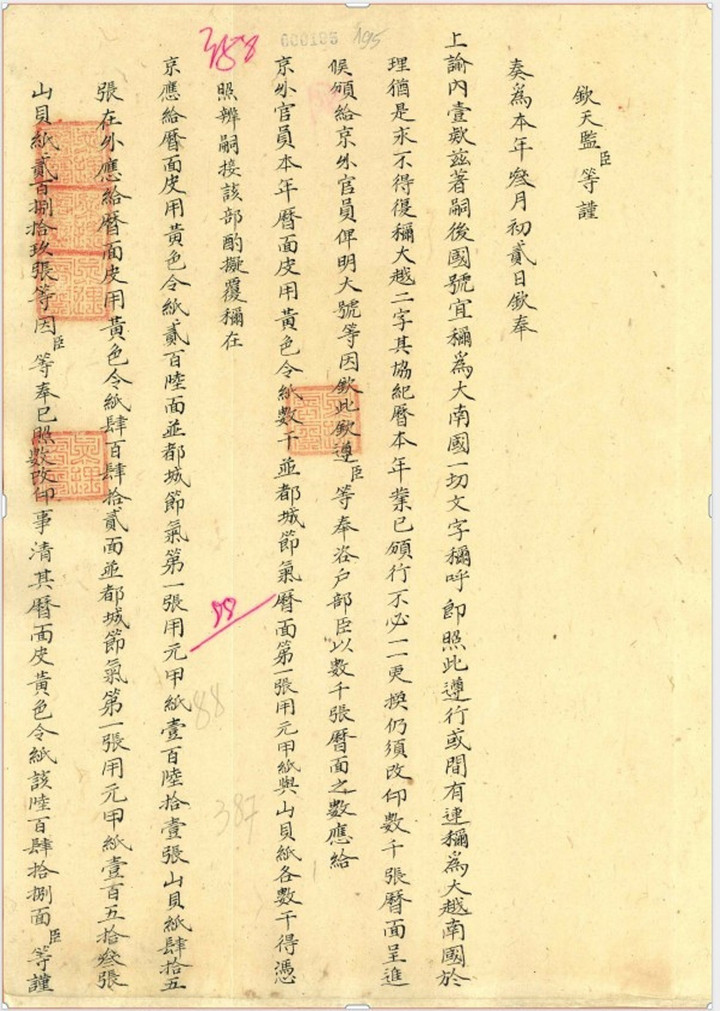 388
000195
195
欽天監臣等謹
奏爲本年叄月初貳日欽奉
上諭內壹欵茲著嗣後國號宜稱爲大南國一切文字稱呼即照此遵行或間有連稱爲大越南國於
理猶是求不得復稱大越二字其協紀曆本年業已頒行不必一一更換仍須改印數千張曆面呈進
候頒給京外官員俾明大號等因欽此欽遵臣等奉咨戶部臣以數千張曆面之數應給
京外官員本年曆面皮用黃色令紙數干並都城節氣曆面第一張用元甲紙與山貝紙各數干得憑
照辦嗣接該部酌擬覆稱在
京應給曆面皮用黃色令紙貳百陸面並都城節氣第一張用元甲紙壹百陸拾壹張山貝紙肆拾五
張在外應給曆面皮用黃色令紙肆百肆拾貳面並都城節氣第一張用元甲紙壹百五拾叄張
山貝紙貳百捌拾玖張等因臣等奉已照數改印事清其曆面皮黃色令紙該陸百肆拾捌面臣等謹
88
88
387